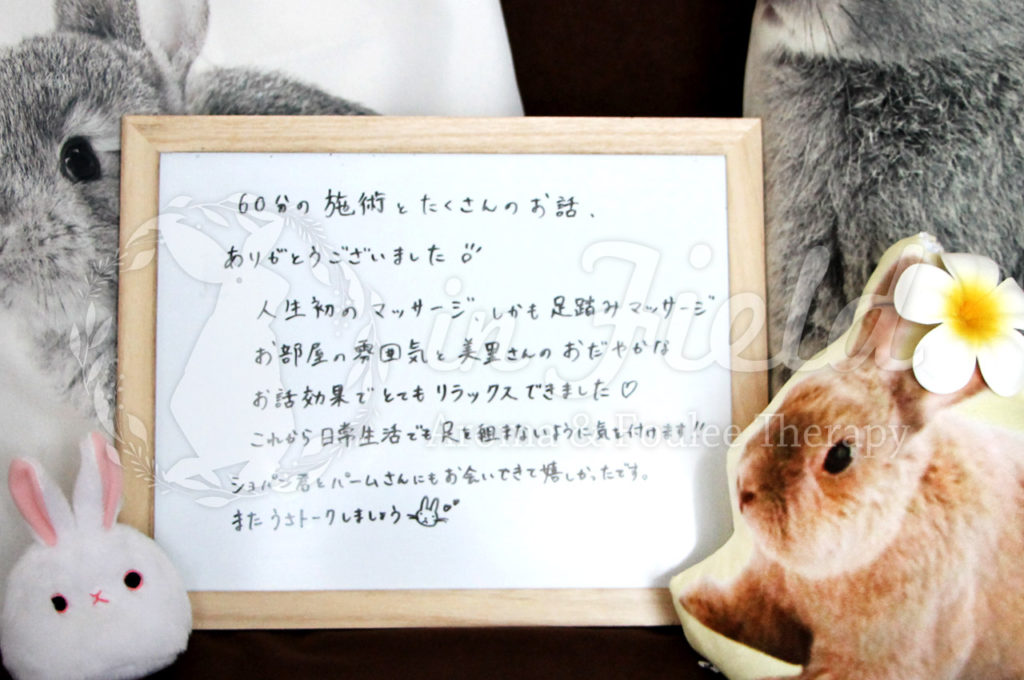 60分の施術とたくさんのお話、
ありがとうございました
人生初のマッサージ しかも足踏みマッサージ
お部屋の雰囲気と美里さんのおだやかな
お話効果でとてもリラックスできました♡
これから日常生活でも足を組まないように気を付けます!!
ショパン君とパームさんにもお会いできて嬉しかったです。
またうさトークしましょう
in Field
Aroma & Foulee Therapy